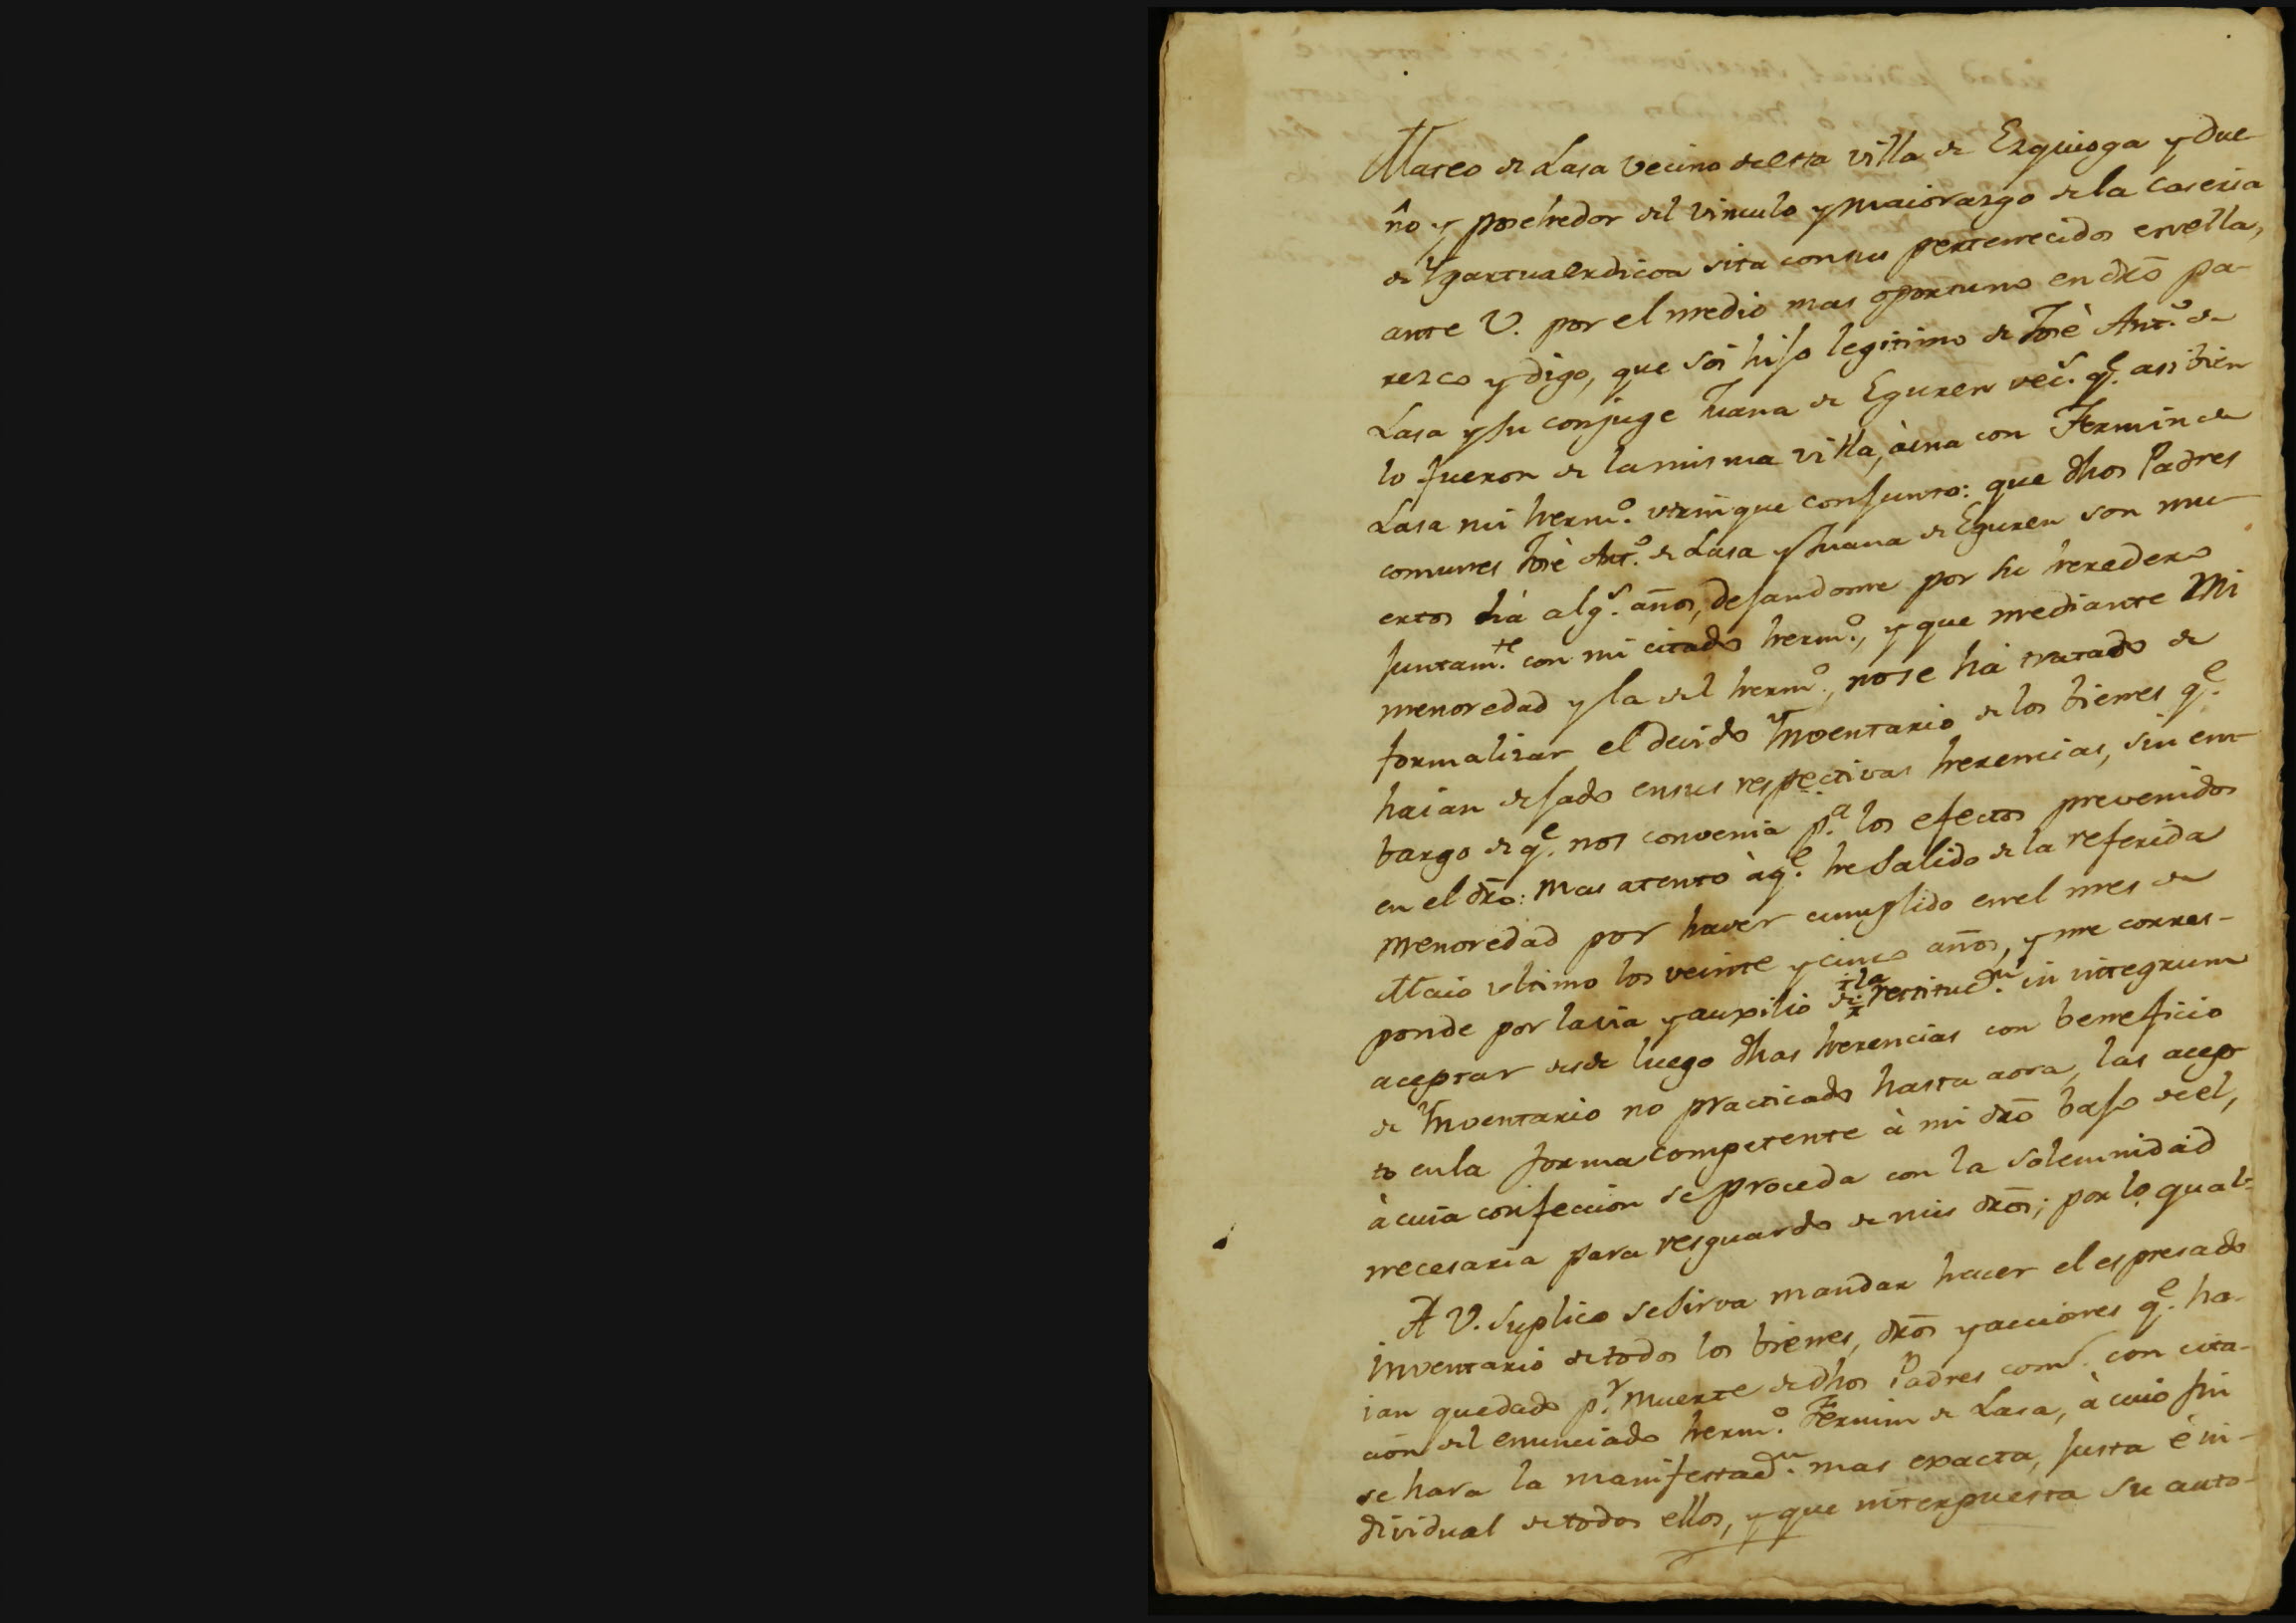 Mateo de Lasa vecino de esta villa de Ezquioga y due-
ño y posehedor del vinculo y maiorazgo de la caseria
de Ygartuaerdicoa sita con sus pertenecidos en ella,
ante V. por el medio mas oportuno en dr̃o pa-
rezco y digo, que soi hijo legitimo de José Ant.º de
Lasa y su conjuge Juana de Eguren vec.s q.e asi bien
lo fueron de la misma villa, à una con Fermin de
Lasa mi herm.º utrinque conjunto: que dhos Padres
comunes José Ant.º de Lasa y Juana de Eguren son mu-
ertos há alg.s años, dejandome por su heredero
juntam.te con mi citado herm.º, y que mediante mi
menoredad y la del herm.º, no se há tratado de
formalizar el devido Ynventario de los bienes q.e
haian dejado en sus respectivas herencias, sin em-
bargo de q.e nos convenia p.a los efectos prevenidos
en el dr̃o: Mas atento à q.e he salido de la referida
menoredad por haver cumplido en el mes de
Maio ultimo los veinte y cinco años, y me corres-
ponde por la via y auxilio de la restituc.n in integrum
aceptar desde luego dhas herencias con beneficio
de Ynventario no practicado hasta aora, las acep-
to en la forma competente à mi dr̃o bajo de el,
à cuia confeccion se proceda con la solemnidad
necesaria para resguardo de mis dr̃os; por lo qual=
A V. suplico se sirva mandar hacer el espresado
inventario de todos los bienes, dr̃os y acciones q.e ha-
ian quedado p.r muerte de dhos Padres com.s con cita-
cion del enunciado herm.º Fermin de Lasa, à cuio fin
se hara la manifestac.n mas exacta, justa é in-
dividual de todos ellos, y que interpuesta su auto-